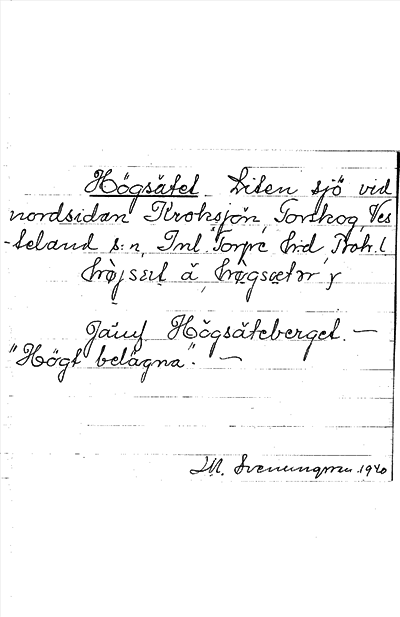 Högsätet Liten sjö vid
nordsidan Kroksjön, Torskog, Ves
-teland s:n, Inl. Torpe h:d, Boh. l
hǫ̀jsɛtɩ ä, hǫgsætər y
Jämf Högsäteberget. —
"Högt belägna". —
M. Svenungsson 1940